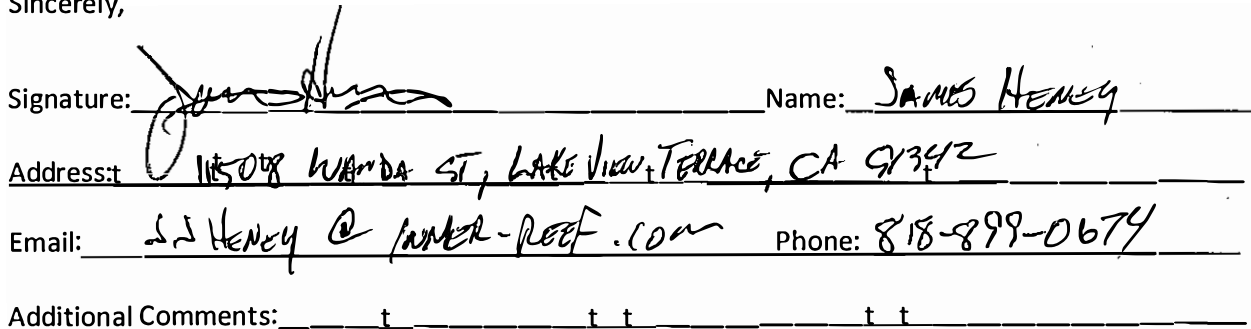 Sincerely,
Signature: James Heney Name: JAMES HENEY
Address:t 11508 WANDA ST, LAKE VIEW TERRACE, CA 91342
Email: JJHENEY @ INNER-REEF.COM Phone: 818-899-0674
Additional Comments: t t t t t